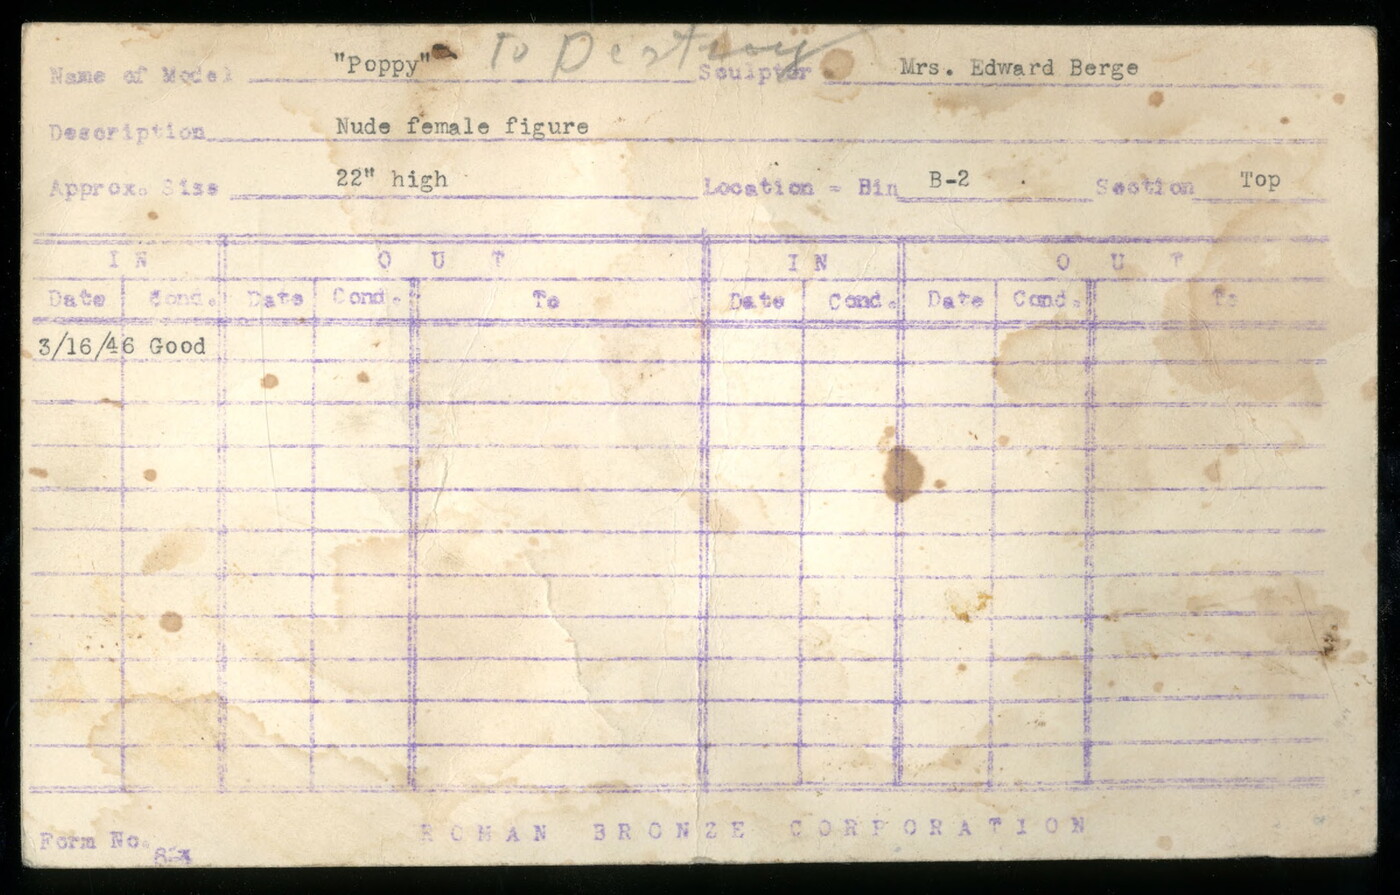 To Destroy
Name of Model "Poppy" Sculptor Mrs. Edward Berge
Description Nude female figure
Approx. Size 22" high Location - Bin B-2 Section Top
IN OUT IN OUT
Date Cond. Date Cond. To Date Cond. Date Cond. To
3/16/46 Good
ROMAN BRONZE CORPORATION
Form No.